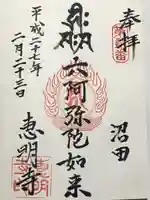 奉拝
沼田
六阿弥陀如来
平成二十七年
二月二十三日
恵明寺